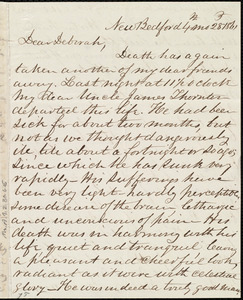 New Bedford 4th mo 23d 1861
Dear Deborah,
Death has again
taken another of my dear friends
away. Last night at 11½ o'clock
My dear Uncle James Thornton
departed this life. He has been
sick for about two months, but
not as we thought dangerously
ill, till about a fortnight or so ago,
Since which he has sunk very
rapidly — His sufferings have
been very light - barely perceptible
some disease of the brain - lethargic
and unconscious of pain - His
death was in harmony with his
life quiet and tranquil
a pleasant and cheerful look
radiant as it were with celestial
glory - He was indeed a lovely, good man